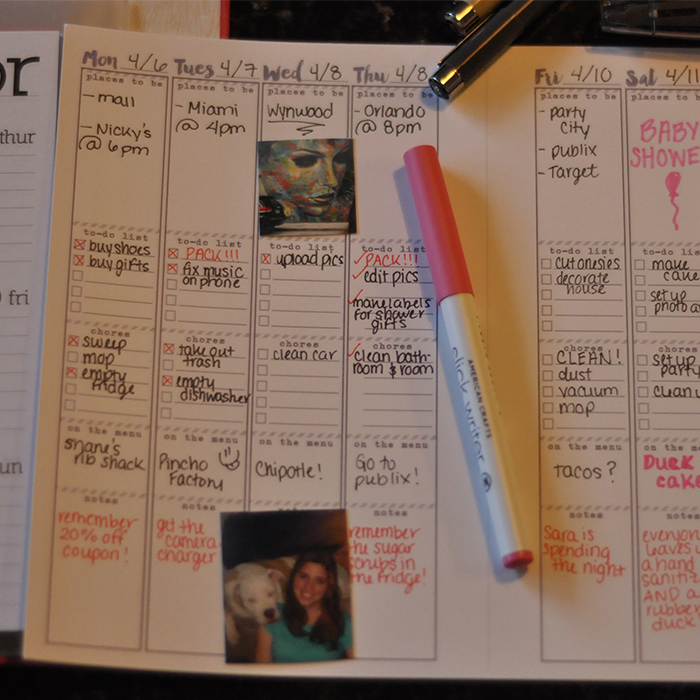 or
thur
fri
un
Mon 4/6
places to be
- mall
- Nicky's
@ 6pm
to-do list
buy shoes
buy gifts
chores
sweep
mop
empty
fridge
on the menu
Shane's
rib shack
notes
remember
20% off
coupon!
Tues 4/7
places to be
- Miami
@ 4pm
to-do list
PACK!!!
fix music
on phone
chores
take out
trash
empty
dishwasher
on the menu
Pincho
Factory
notes
get the
camera
charger
Wed 4/8
places to be
Wynwood
to-do list
upload pics
chores
clean car
on the menu
Chipotle!
Thu 4/8
places to be
- Orlando
@ 8pm
to-do list
PACK!!!
edit pics
make labels
for shower
gifts
chores
clean bath-
room & room
on the menu
Go to
publix!
notes
remember
the sugar
scrubs in
the fridge!
AMERICAN CRAFTS
click writer
Fri 4/10
places to be
- party
city
- publix
- Target
to-do list
cut onesies
decorate
house
chores
CLEAN!
dust
vacuum
mop
on the menu
tacos?
notes
Sara is
spending
the night
Sat 4/11
places to be
BABY
SHOWE
to-do list
make
cake
set up
photo a
chores
set up
party
clean u
on the menu
Duck
cake
notes
everyon
leaves
a hand
saniti
AND a
rubber
duck